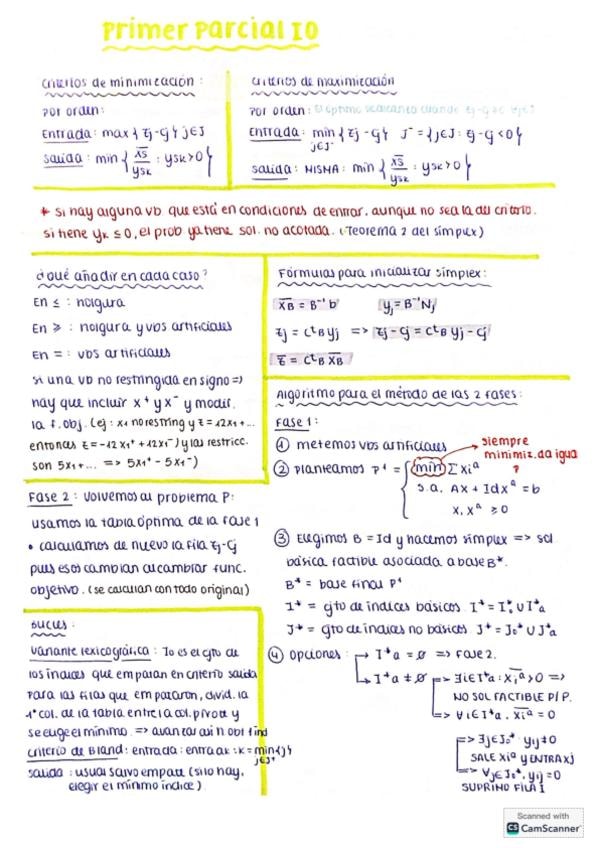 Primer Parcial IO
criterios de minimización :
por orden:
Entrada : max { zj - cj } j∈J
salida : min { x̄s / ysk : ysk > 0 }
criterios de maximización
por orden: El óptimo se alcanza cuando zj - cj ≥ 0 ∀j∈J
Entrada : min { zj - cj } J⁻ = { j∈J : zj - cj < 0 }
j∈J⁻
salida : MISMA : min { x̄s / ysk : ysk > 0 }
* si hay alguna vb. que está en condiciones de entrar, aunque no sea la del criterio.
si tiene yk ≤ 0, el prob ya tiene sol. no acotada. (Teorema 2 del simplex)
¿qué añadir en cada caso?
En ≤ : holgura
En ≥ : holgura y vbs artificiales
En = : vbs artificiales
si una vb no restringida en signo =>
hay que incluir x⁺ y x⁻ y modif.
la f. obj. (ej : x₁ no restring y z = 12x₁ + ...
entonces z = -12x₁⁺ + 12x₁⁻) y las restricc.
son 5x₁ + ... => 5x₁⁺ - 5x₁⁻)
Fórmulas para inicializar simplex :
x̄B = B⁻¹ b yj = B⁻¹ Nj
zj = CᵗB yj => zj - cj = CᵗB yj - cj
z̄ = CᵗB x̄B
Algoritmo para el método de las 2 fases:
Fase 1 :
① metemos vbs artificiales
② planteamos P¹ = { min Σ xiᵃ
s.a. Ax + Id xᵃ = b
x, xᵃ ≥ 0
siempre
minimiz. da igual
P
③ Elegimos B = Id y hacemos simplex => sol
básica factible asociada a base B*.
B* = base final P¹
I* = cjto de índices básicos I* = I₀* ∪ I*a
J* = cjto de índices no básicos J* = J₀* ∪ J*a
④ Opciones : → I*a = ∅ => Fase 2.
→ I*a ≠ ∅ => ∃i∈I*a : x̄iᵃ > 0 =>
NO SOL FACTIBLE P/P.
=> ∀i∈I*a . x̄iᵃ = 0
=> ∃j∈J₀* yij ≠ 0
SALE xiᵃ y ENTRA xj
=> ∀j∈J₀*, yij = 0
SUPRIMO FILA I
Fase 2 : volvemos al problema P:
usamos la tabla óptima de la fase 1
• calculamos de nuevo la fila zj - cj
pues esos cambian al cambiar func.
objetivo. (se calculan con todo original)
Bucles :
variante lexicográfica : I₀ es el cjto de
los índices que empatan en criterio salida
para las filas que empataron, divid. la
1ª col. de la tabla entre la col. pivote y
se elige el mínimo. => avanzar así
criterio de Bland : entrada : entra ak : k = min { j }
j∈J⁺
salida : usual salvo empate (si lo hay,
elegir el mínimo índice)
Scanned with
CS CamScanner